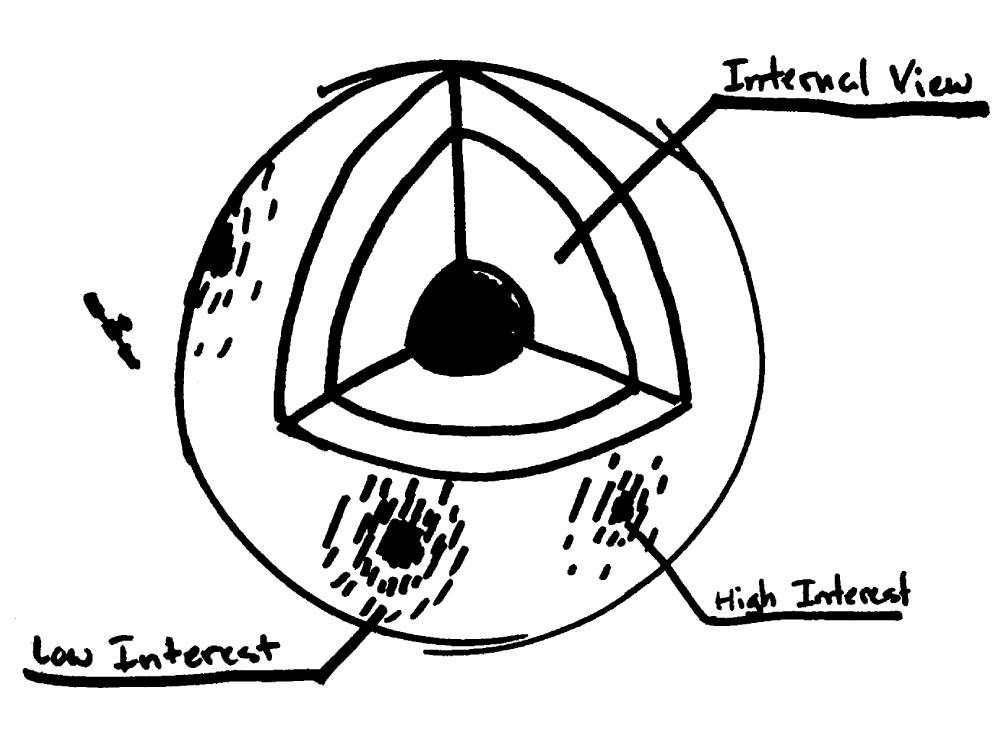 Internal View
High Interest
Low Interest